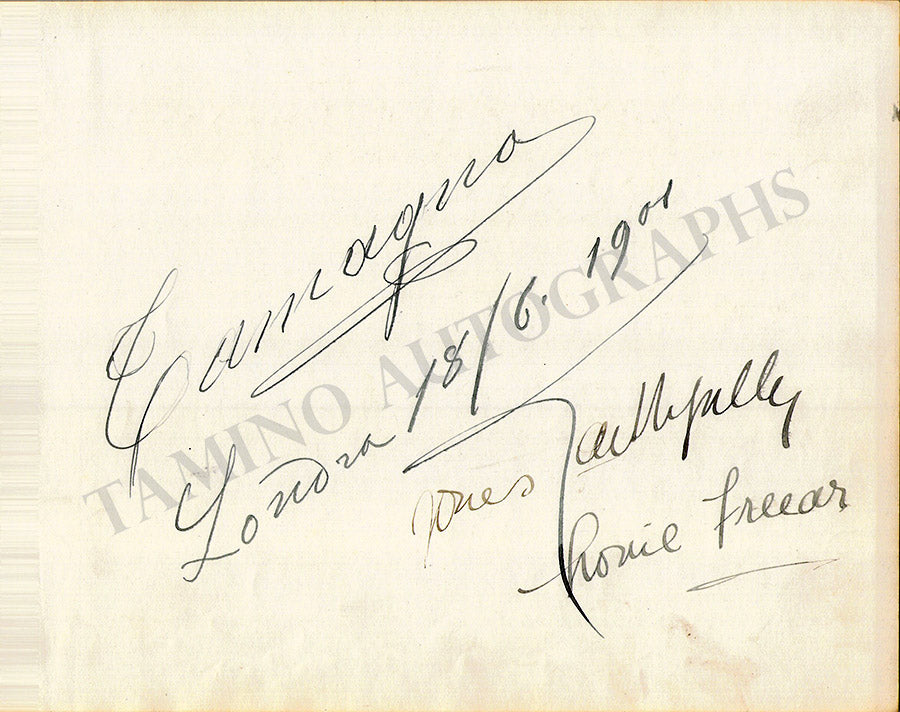 Tamagno
Londra 18/6. 1901
yours faithfully
Freear
TAMINO AUTOGRAPHS